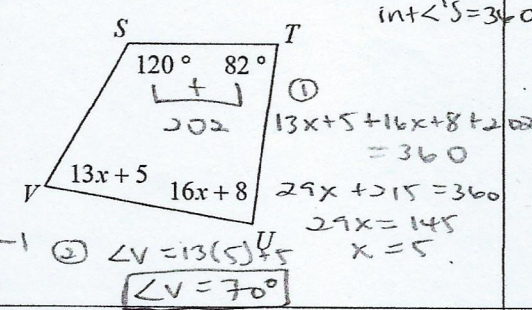 int <'s = 360
S
T
120° 82°
+
202
①
13x+5+16x+8+202
= 360
13x + 5
16x + 8
V
U
29x +215 = 360
29x = 145
x = 5.
-1
② <V = 13(5)+5
<V = 70°